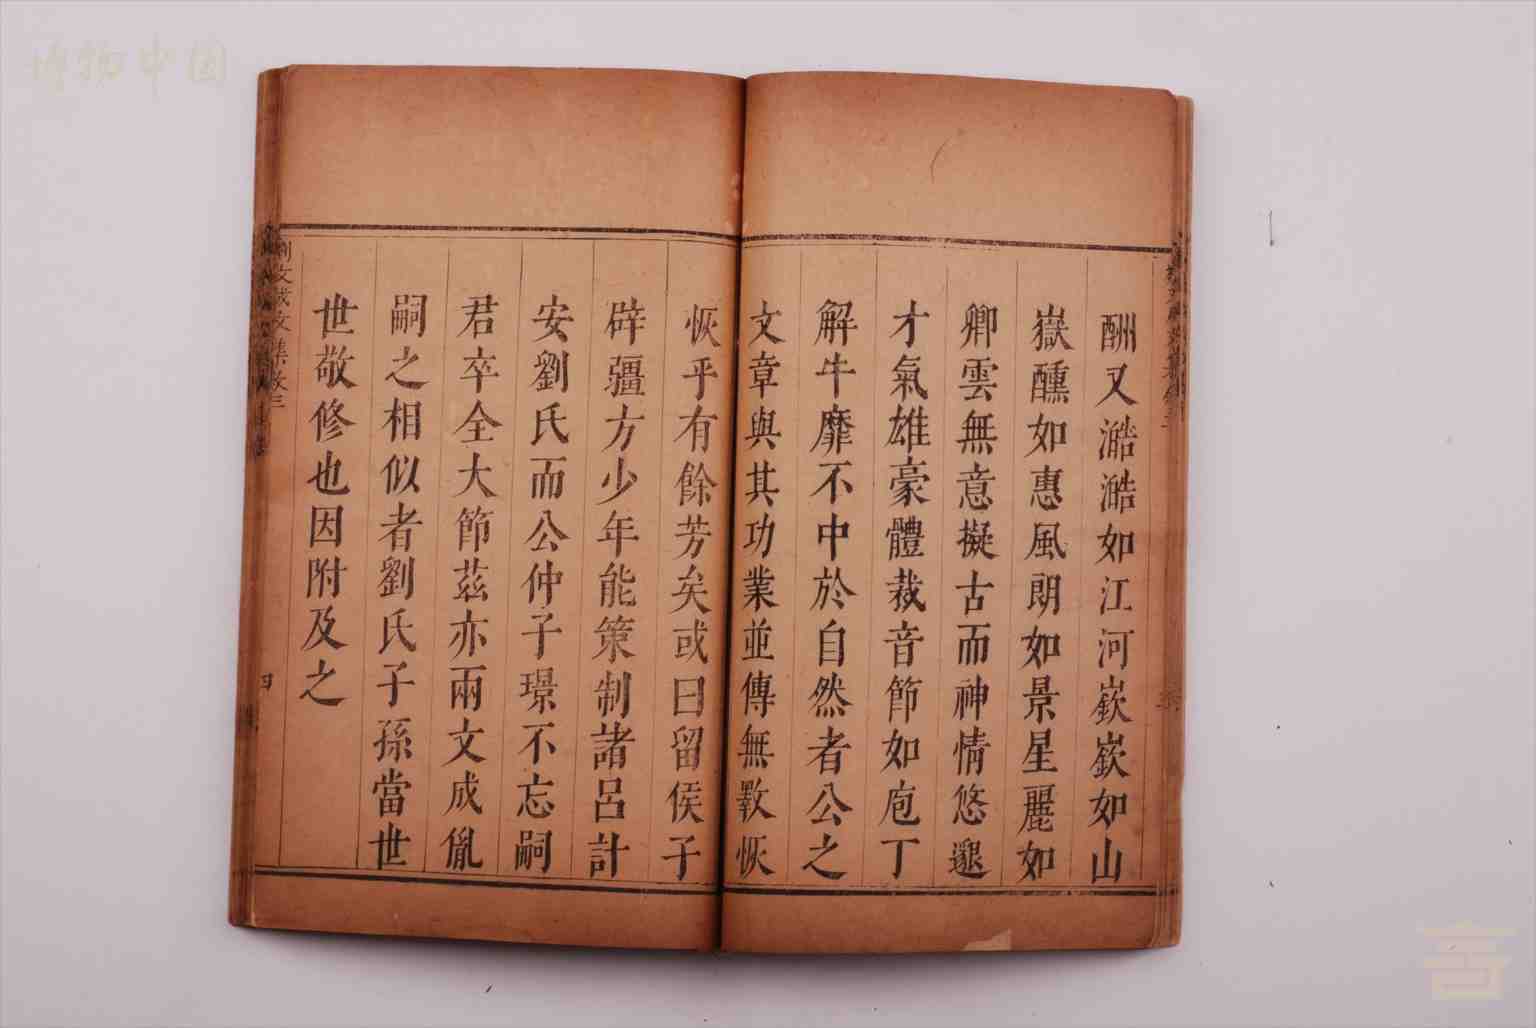 酬又澔澔如江河嶔嶔如山
嶽醺如惠風朗如景星麗如
卿雲無意擬古而神情悠邈
才氣雄豪體裁音節如庖丁
解牛靡不中於自然者公之
文章與其功業並傳無斁恢
恢乎有餘芳矣或曰留侯子
辟疆方少年能策制諸呂計
安劉氏而公仲子璟不忘嗣
君卒全大節茲亦兩文成胤
嗣之相似者劉氏子孫當世
世敬修也因附及之
四
博物中国